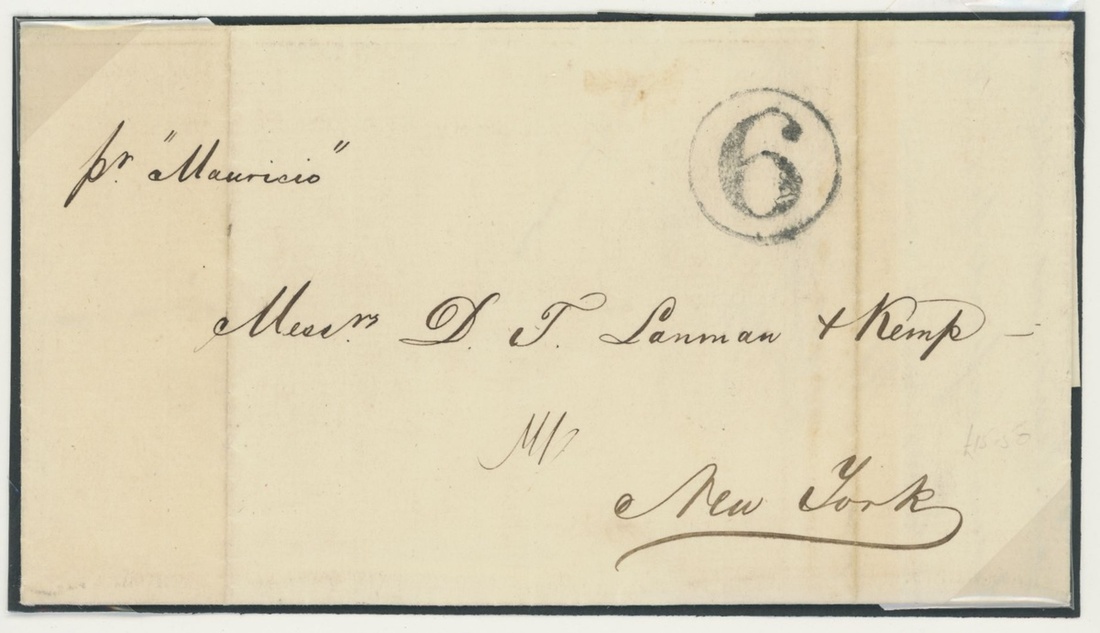 pr. "Mauricio"
6
Messrs. D. T. Lanman & Kemp
New York